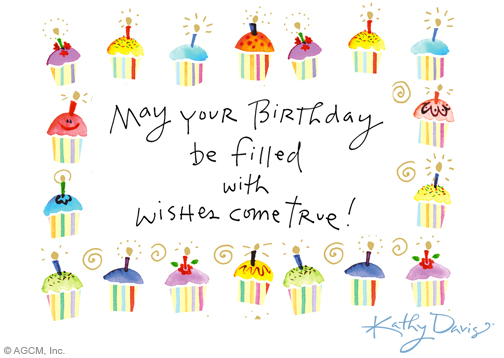 May your Birthday
be filled
with
wishes come True!
Kathy Davis
© AGCM, Inc.